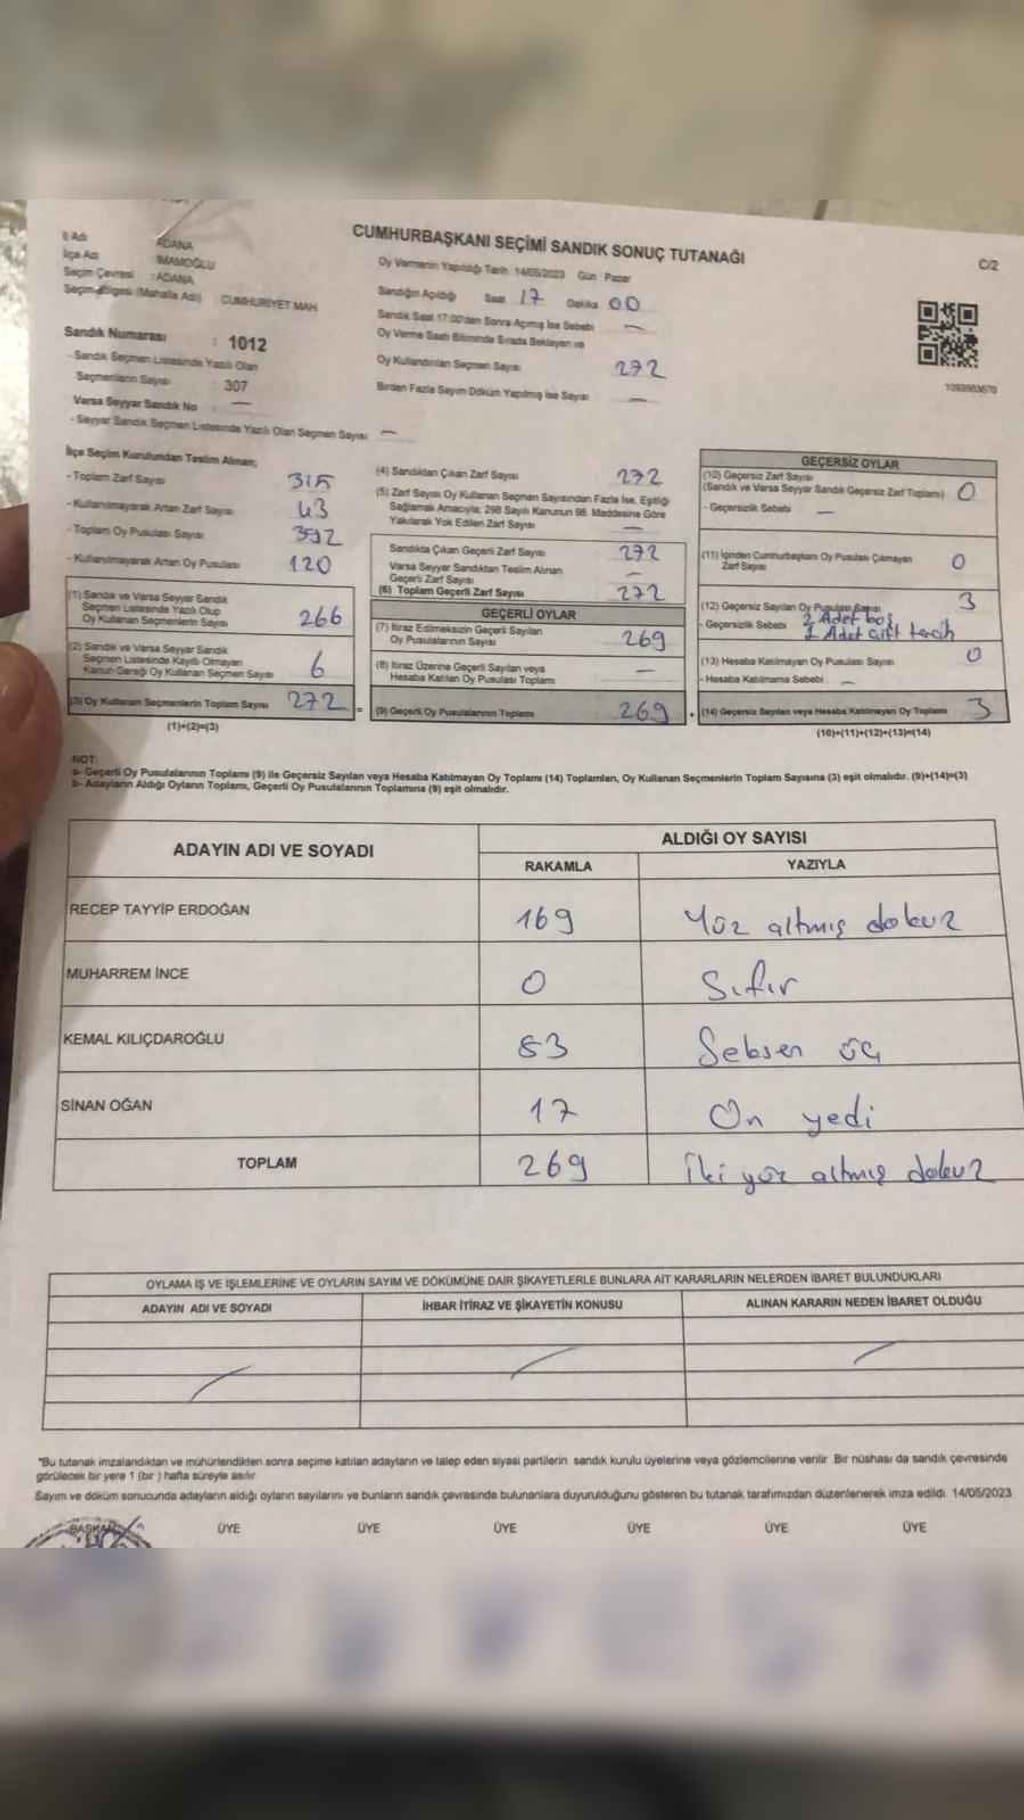 CUMHURBAŞKANI SEÇİMİ SANDIK SONUÇ TUTANAĞI
C/2
İl Adı ADANA
İlçe Adı İMAMOĞLU
Seçim Çevresi : ADANA
Seçim Bölgesi (Mahalle Adı) CUMHURİYET MAH
Sandık Numarası : 1012
- Sandık Seçmen Listesinde Yazılı Olan
Seçmenlerin Sayısı : 307
Varsa Seyyar Sandık No —
- Seyyar Sandık Seçmen Listesinde Yazılı Olan Seçmen Sayısı —
Oy Vermenin Yapıldığı Tarih 14/05/2023 Gün : Pazar
Sandığın Açıldığı Saat 17 Dakika 00
Sandık Saat 17:00'den Sonra Açılmış İse Sebebi —
Oy Verme Saati Bitiminde Sırada Bekleyen ve
Oy Kullandırılan Seçmen Sayısı 272
Birden Fazla Sayım Döküm Yapılmış İse Sayısı —
İlçe Seçim Kurulundan Teslim Alınan;
- Toplam Zarf Sayısı 315
- Kullanılmayarak Artan Zarf Sayısı 43
- Toplam Oy Pusulası Sayısı 392
- Kullanılmayarak Artan Oy Pusulası 120
(1) Sandık ve Varsa Seyyar Sandık
Seçmen Listesinde Yazılı Olup
Oy Kullanan Seçmenlerin Sayısı 266
(2) Sandık ve Varsa Seyyar Sandık
Seçmen Listesinde Kayıtlı Olmayan
Kanun Gereği Oy Kullanan Seçmen Sayısı 6
(3) Oy Kullanan Seçmenlerin Toplam Sayısı 272
(1)+(2)=(3)
(4) Sandıktan Çıkan Zarf Sayısı 272
(5) Zarf Sayısı Oy Kullanan Seçmen Sayısından Fazla İse, Eşitliği
Sağlamak Amacıyla; 298 Sayılı Kanunun 98. Maddesine Göre
Yakılarak Yok Edilen Zarf Sayısı —
Sandıkta Çıkan Geçerli Zarf Sayısı 272
Varsa Seyyar Sandıktan Teslim Alınan
Geçerli Zarf Sayısı —
(6) Toplam Geçerli Zarf Sayısı 272
GEÇERLİ OYLAR
(7) İtiraz Edilmeksizin Geçerli Sayılan
Oy Pusulalarının Sayısı 269
(8) İtiraz Üzerine Geçerli Sayılan veya
Hesaba Katılan Oy Pusulası Toplamı —
(9) Geçerli Oy Pusulalarının Toplamı 269
GEÇERSİZ OYLAR
(10) Geçersiz Zarf Sayısı
(Sandık ve Varsa Seyyar Sandık Geçersiz Zarf Toplamı) 0
- Geçersizlik Sebebi —
(11) İçinden Cumhurbaşkanı Oy Pusulası Çıkmayan
Zarf Sayısı 0
(12) Geçersiz Sayılan Oy Pusulası Sayısı 3
- Geçersizlik Sebebi 2 Adet boş
1 Adet çift tercih
(13) Hesaba Katılmayan Oy Pusulası Sayısı 0
- Hesaba Katılmama Sebebi —
(14) Geçersiz Sayılan veya Hesaba Katılmayan Oy Toplamı 3
(10)+(11)+(12)+(13)=(14)
NOT:
a- Geçerli Oy Pusulalarının Toplamı (9) ile Geçersiz Sayılan veya Hesaba Katılmayan Oy Toplamı (14) Toplamları, Oy Kullanan Seçmenlerin Toplam Sayısına (3) eşit olmalıdır. (9)+(14)=(3)
b- Adayların Aldığı Oyların Toplamı, Geçerli Oy Pusulalarının Toplamına (9) eşit olmalıdır.
ADAYIN ADI VE SOYADI
ALDIĞI OY SAYISI
RAKAMLA YAZIYLA
RECEP TAYYİP ERDOĞAN 169 Yüz altmış dokuz
MUHARREM İNCE 0 Sıfır
KEMAL KILIÇDAROĞLU 83 Seksen üç
SİNAN OĞAN 17 On yedi
TOPLAM 269 İki yüz altmış dokuz
OYLAMA İŞ VE İŞLEMLERİNE VE OYLARIN SAYIM VE DÖKÜMÜNE DAİR ŞİKAYETLERLE BUNLARA AİT KARARLARIN NELERDEN İBARET BULUNDUKLARI
ADAYIN ADI VE SOYADI İHBAR İTİRAZ VE ŞİKAYETİN KONUSU ALINAN KARARIN NEDEN İBARET OLDUĞU
"Bu tutanak imzalandıktan ve mühürlendikten sonra seçime katılan adayların ve talep eden siyasi partilerin sandık kurulu üyelerine veya gözlemcilerine verilir. Bir nüshası da sandık çevresinde
görülecek bir yere 1 (bir) hafta süreyle asılır
Sayım ve döküm sonucunda adayların aldığı oyların sayılarını ve bunların sandık çevresinde bulunanlara duyurulduğunu gösteren bu tutanak tarafımızdan düzenlenerek imza edildi. 14/05/2023
BAŞKAN ÜYE ÜYE ÜYE ÜYE ÜYE ÜYE